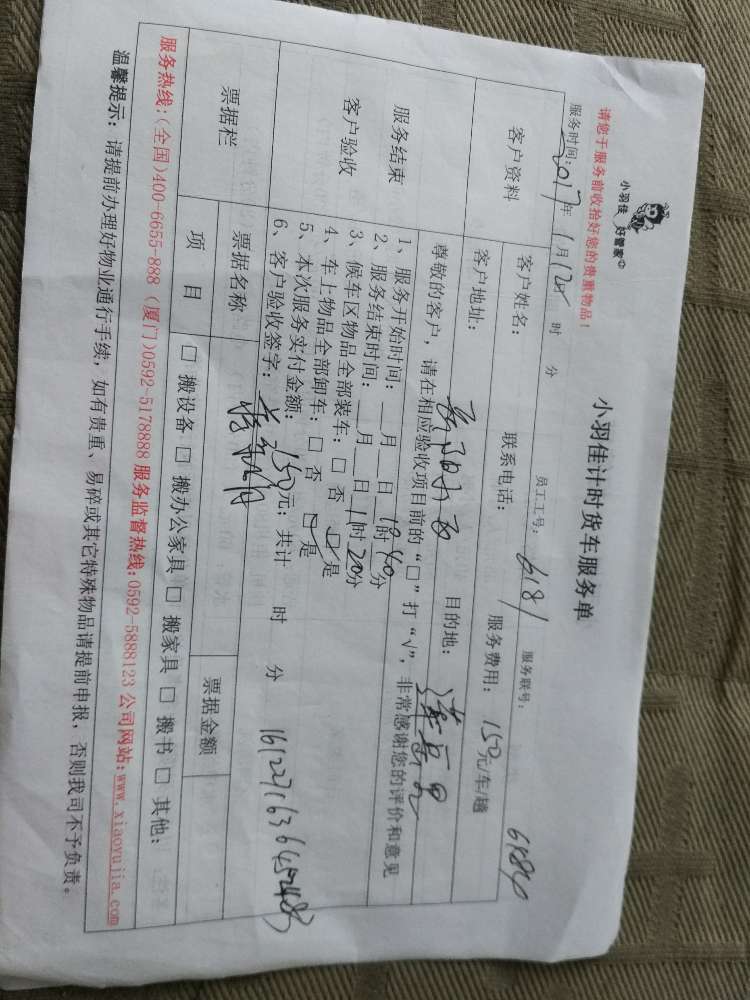 小羽佳 好管家
请您于服务前收拾好您的贵重物品！
小羽佳计时货车服务单
服务时间：2017年1月12日 时 分 员工工号：6181 服务联号：
客户资料 客户姓名： 联系电话： 服务费用：150元/车/趟
客户地址： 目的地：
服务结束 客户验收
尊敬的客户，请在相应验收项目前的“□”打“√”，非常感谢您的评价和意见
1、服务开始时间：＿月＿日 时40分
2、服务结束时间：＿月＿日11时20分
3、候车区物品全部装车：□ 否 ☑ 是
4、车上物品全部卸车：□ 否 ☑ 是
5、本次服务实付金额：150元；共计 时 分
6、客户验收签字：
1612271636452483
票据栏 票据名称 票据金额
项 目 □ 搬设备 □ 搬办公家具 □ 搬家具 □ 搬书 □ 其他：
服务热线：(全国)400-6655-888 (厦门)0592-5178888 服务监督热线：0592-5888123 公司网站：www.xiaoyujia.com
温馨提示：请提前办理好物业通行手续，如有贵重、易碎或其它特殊物品请提前申报，否则我司不予负责。